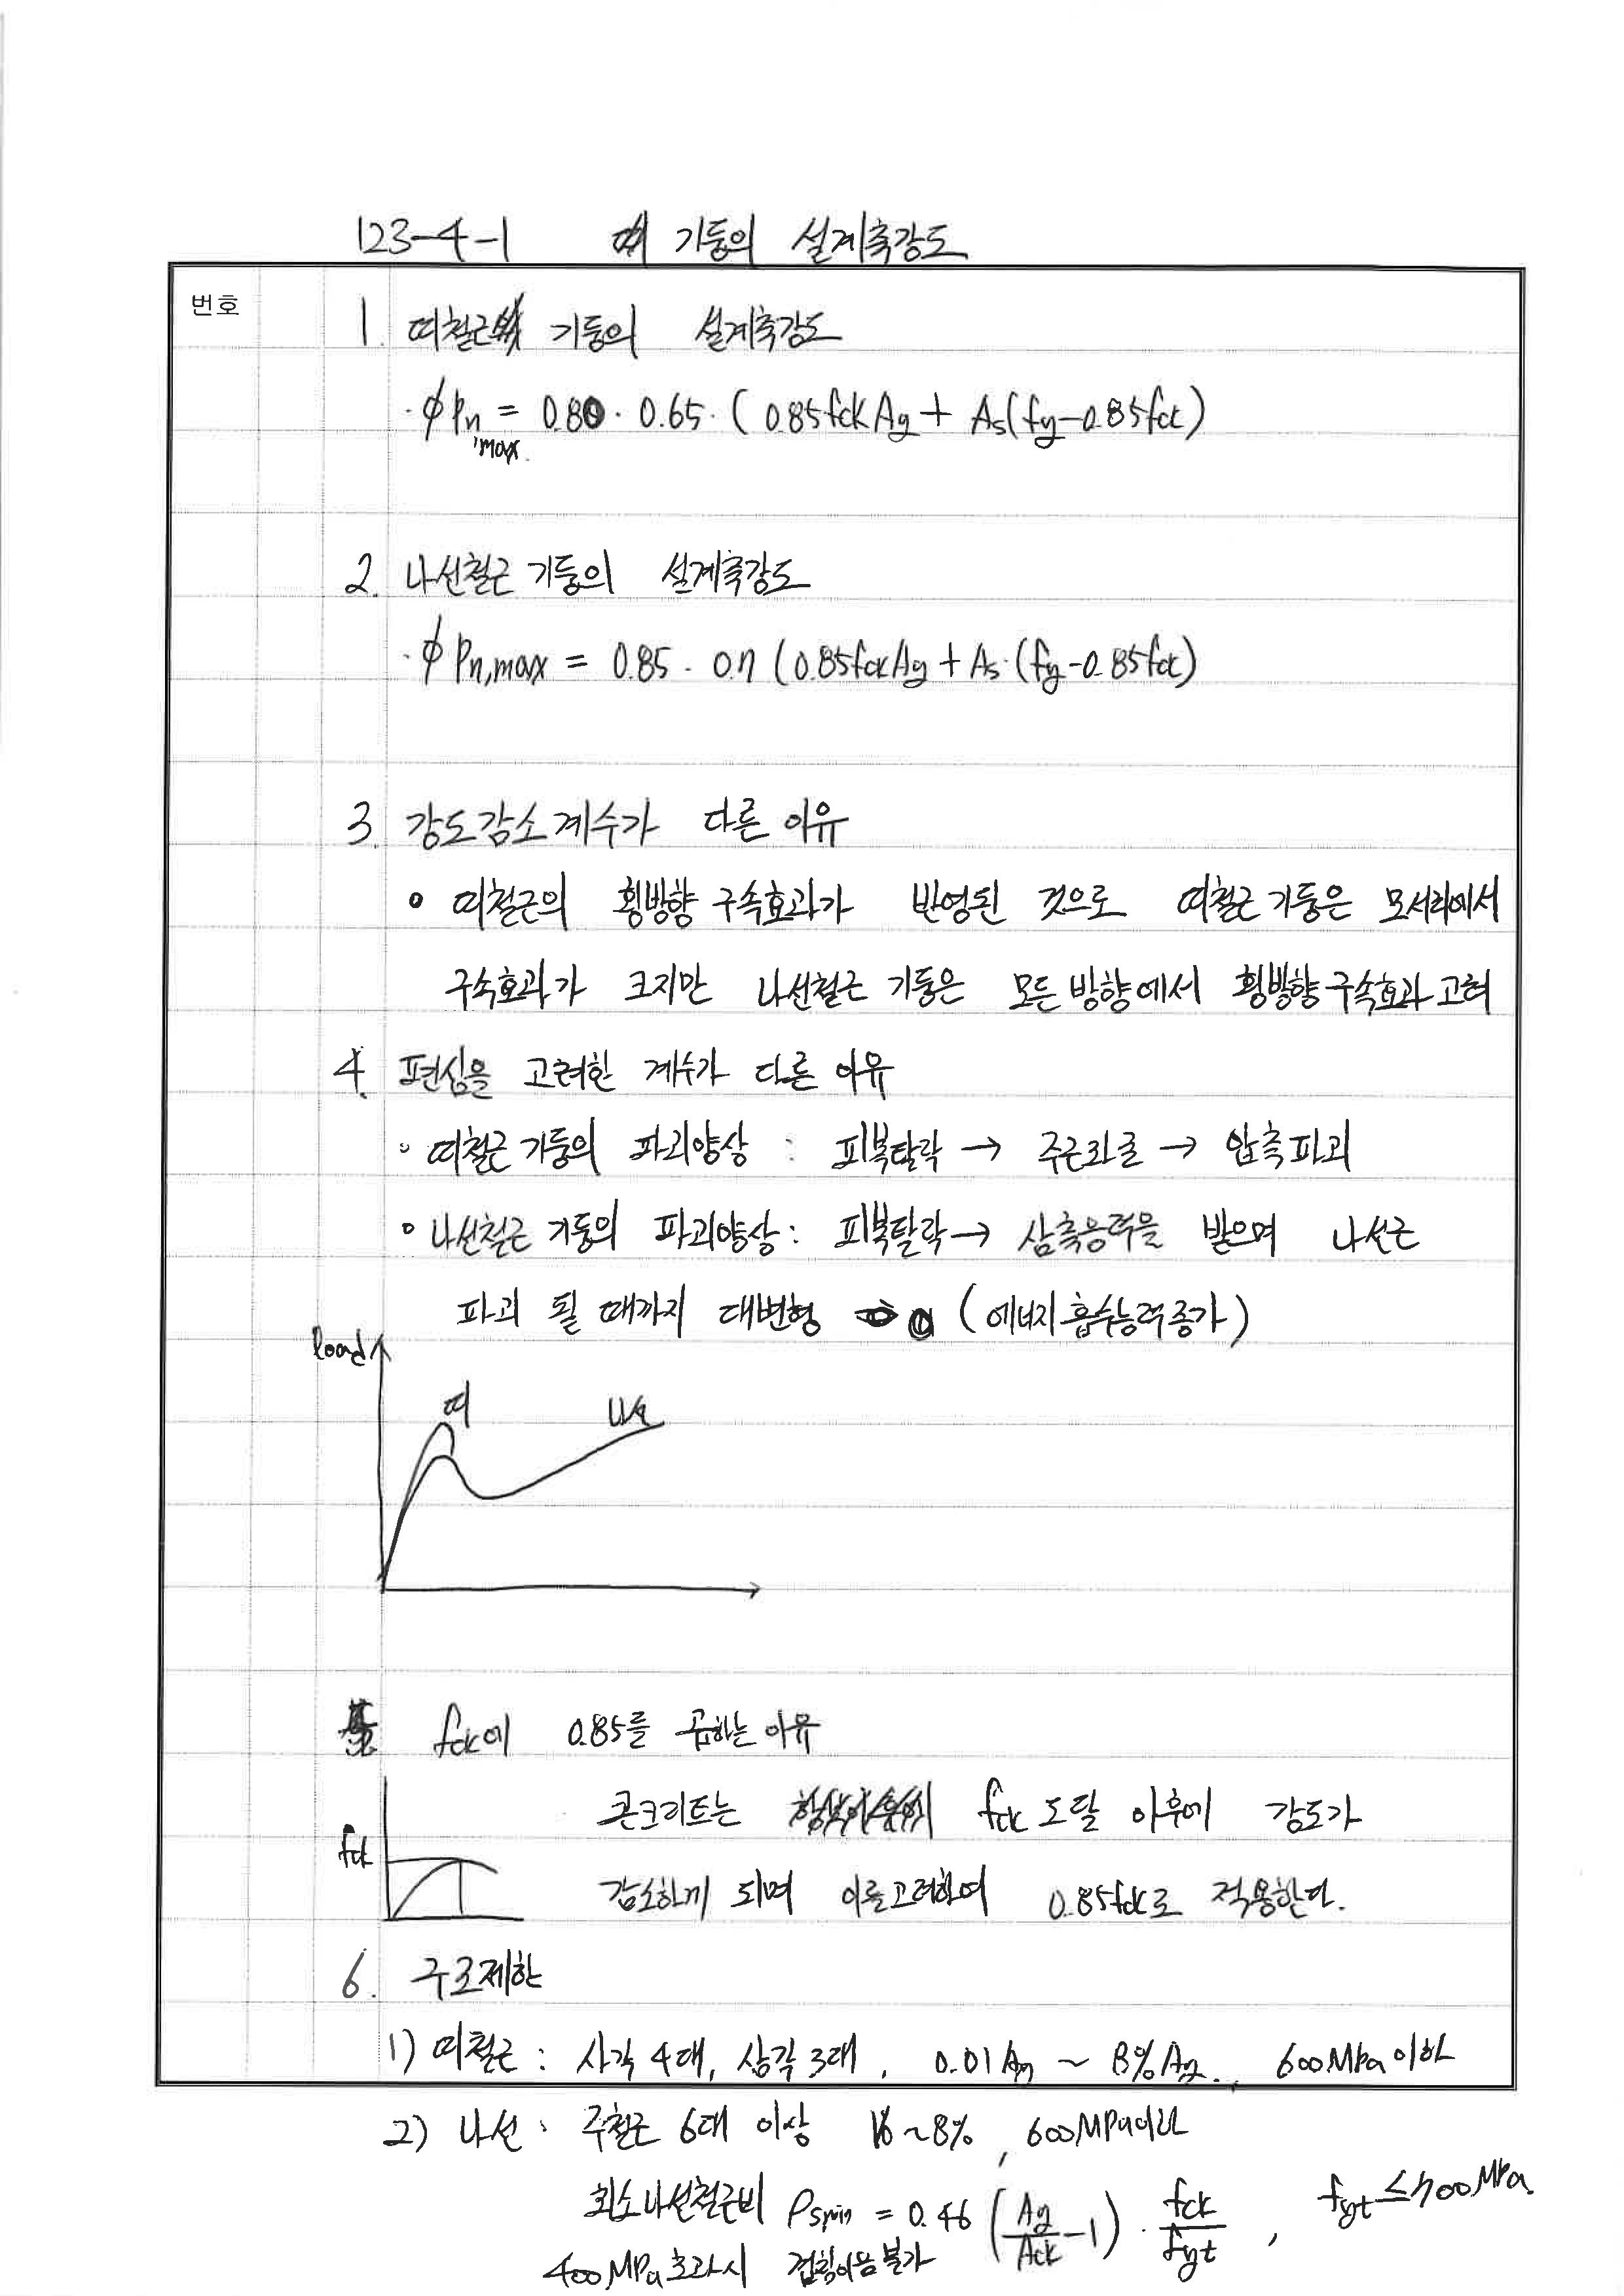 123-4-1 기둥의 설계축강도
번호
1. 띠철근 기둥의 설계축강도
· ϕPn,max = 0.80 · 0.65 · (0.85fckAg + As(fy-0.85fck)
2. 나선철근 기둥의 설계축강도
· ϕPn,max = 0.85 · 0.7 (0.85fckAg + As·(fy-0.85fck)
3. 강도감소계수가 다른 이유
∘ 띠철근의 횡방향 구속효과가 반영된 것으로 띠철근 기둥은 모서리에서
구속효과가 크지만 나선철근 기둥은 모든 방향에서 횡방향 구속효과 고려
4. 편심을 고려한 계수가 다른 이유
∘ 띠철근 기둥의 파괴양상 : 피복탈락 → 주근좌굴 → 압축파괴
∘ 나선철근 기둥의 파괴양상 : 피복탈락 → 삼축응력을 받으며 나선근
파괴 될 때까지 대변형 (에너지흡수능력증가)
load
띠 나선
fck에 0.85를 곱하는 이유
콘크리트는 fck 도달 이후에 강도가
fck
감소하게 되며 이를고려하여 0.85fck로 적용한다.
6. 구조제한
1) 띠철근 : 사각 4대, 삼각 3대, 0.01Ag ~ 8%Ag, 600MPa이하
2) 나선 : 주철근 6대 이상 ~8%, 600MPa이하
최소나선철근비 ρsmin = 0.46 (Ag/Ack - 1) · fck/fyt , fyt ≤ 700MPa
400MPa초과시 겹침이음불가